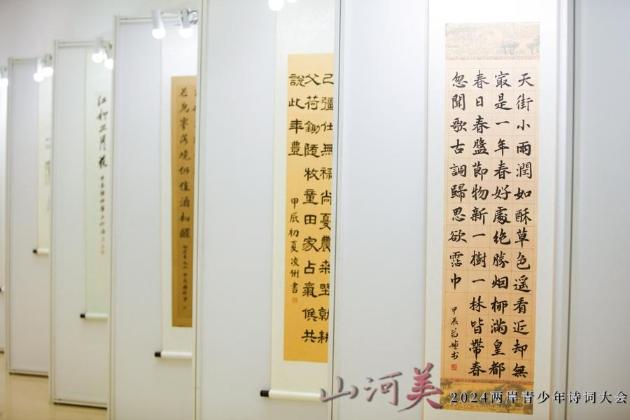 天街小雨潤如酥草色遥看近却無
最是一年春好處絶勝烟柳滿皇都
春日春盤節物新一樹一林皆帶春
忽聞歌古調歸思欲霑巾
甲辰
書
已彊仕無禄尚憂農桒墅就耕
父荷鋤隨牧童田家占氣候共
說此年豐
甲辰初夏凌俐書
二月花
山河美
2024两岸青少年诗词大会